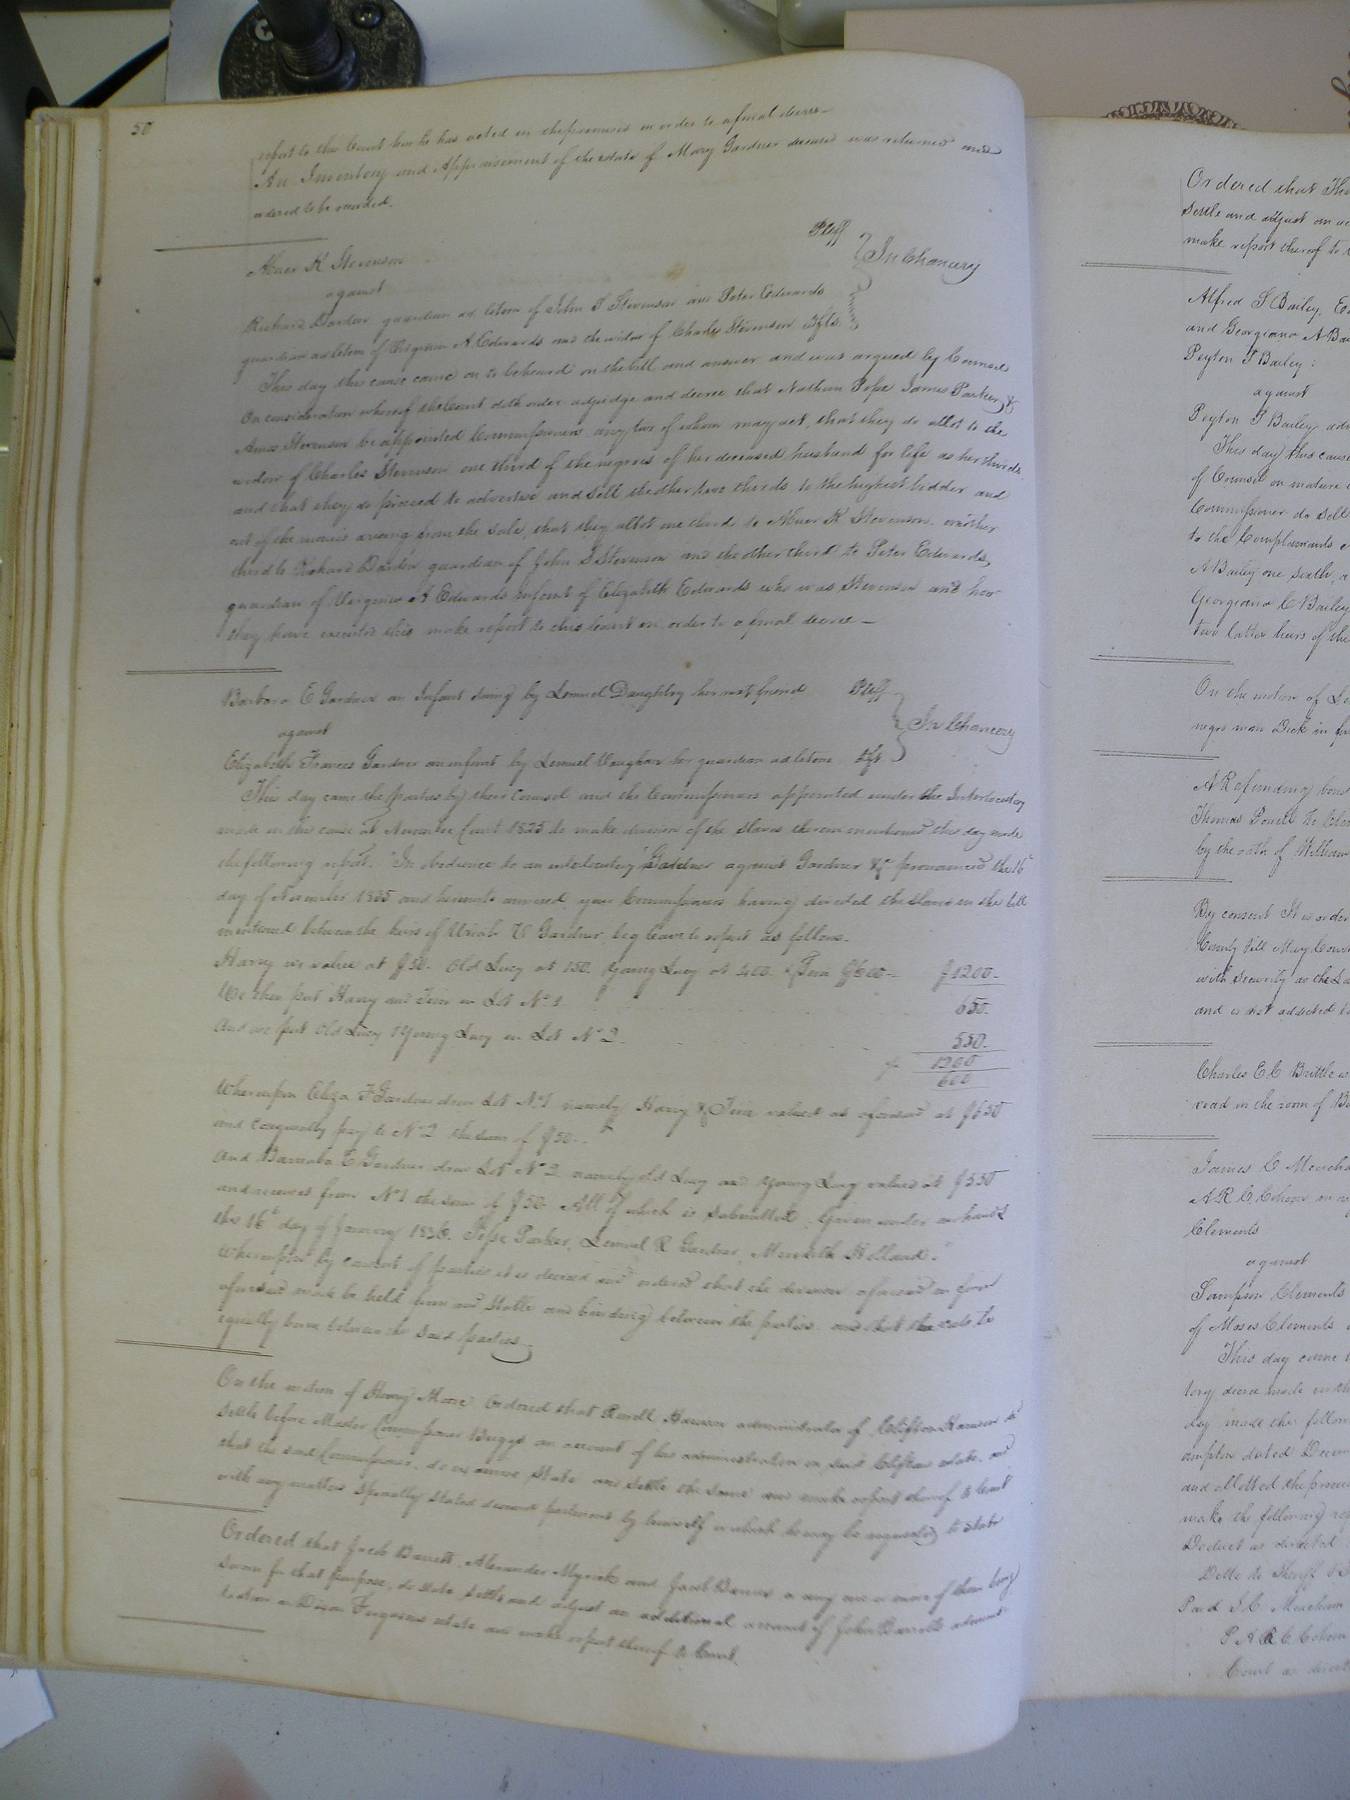 50
report to this Court how he has acted in the premises in order to a final decree
An Inventory and Appraisement of the estate of Mary Gardner deceased was returned and
ordered to be recorded.
Abner K Stevenson Pltff
against In Chancery
Richard Darden guardian ad litem of John S Stevenson and Peter Edwards
guardian ad litem of Virginia A Edwards and the widow of Charles Stevenson Dfts
This day this cause came on to be heard on the bill and answer and was argued by Counsel
On consideration whereof the Court doth order adjudge and decree that Nathan Pope James Parker &
Amos Stevenson be appointed Commissioners any two of whom may act, that they do allot to the
widow of Charles Stevenson one third of the negroes of her deceased husband for life as her thirds
and that they do proceed to advertise and sell the other two thirds to the highest bidder and
out of the monies arising from the sale, that they allot one third to Abner K Stevenson another
third to Richard Darden guardian of John S Stevenson and the other third to Peter Edwards,
guardian of Virginia A Edwards infant of Elizabeth Edwards who was Stevenson and how
they have executed this make report to this Court in order to a final decree
Barbara E Gardner an Infant suing by Lemuel Daughtry her next friend Pltff
against In Chancery
Elizabeth Frances Gardner an infant by Lemuel Vaughan her guardian ad litem Dft
This day came the parties by their Counsel and the Commissioners appointed under the Interlocutory
made in this cause at November Court 1835 to make division of the slaves therein mentioned this day made
the following report. "In obedience to an interlocutory Gardner against Gardner &c pronounced the 16th
day of November 1835 and hereunto annexed, your Commissioners having divided the slaves in the bill
mentioned between the heirs of Uriah V Gardner, beg leave to report as follows.
Harry we value at $50. Old Lucy at 150. Young Lucy at 400. & $600 $1200.
We then put Harry and in Lot No 1 650.
And we put Old Lucy & Young Lucy in Lot No 2. 550.
1200
600
Whereupon Eliza F Gardner drew Lot No 1 namely Harry & valued as aforesaid at $650
and consequently pay to No 2 the sum of $50.
And Barbara E Gardner drew Lot No 2 namely old Lucy and Young Lucy valued at $550
and receives from No 1 the sum of $50. All of which is submitted. Given under our hands
this 16th day of January 1836. Jesse Parker, Lemuel R Gardner, Meredith Holland."
Whereupon by consent of parties it is decreed and ordered that the division aforesaid in form
aforesaid made be held firm and stable and binding between the parties and that the costs be
equally borne between the said parties.
On the motion of Henry Moore Ordered that administrator of Clifton decd
settle before Master Commissioner Briggs an account of his administration on said Clifton estate, and
that the said Commissioner do examine State and settle the same and make report thereof to Court
with any matters specially stated deemed pertinent by himself or which he may be requested to state
Ordered that Jacob Barrett, Alexander Myrick and Jacob Barnes or any one or more of them being
sworn for that purpose, do state settle and adjust an additional account of John Barretts adminis
tration on Dixon Fergusons estate and make report thereof to Court.
Ordered that
settle and adjust an
make report thereof to
Alfred S Bailey,
and Georgiana A
Peyton T Bailey:
against
Peyton T Bailey
This day this cause
of Counsel on mature
Commissioner do sell
to the Complainants
A Bailey one sixth,
Georgiana C Bailey
two latter heirs of the
On the motion of
negro man Dick in
A Refunding bond
Thomas Powell
by the oath of William
By consent It is order
County till May Court
with security as the
and is not addicted
Charles E C Brittle
road in the room of
James C
A R C Cohoon
Clements
against
Sampson Clements
of Moses Clements
This day came
tory decree made in
day made the follow
ampton dated
and allotted the
make the following
Deduct as directed
Paid
Court as